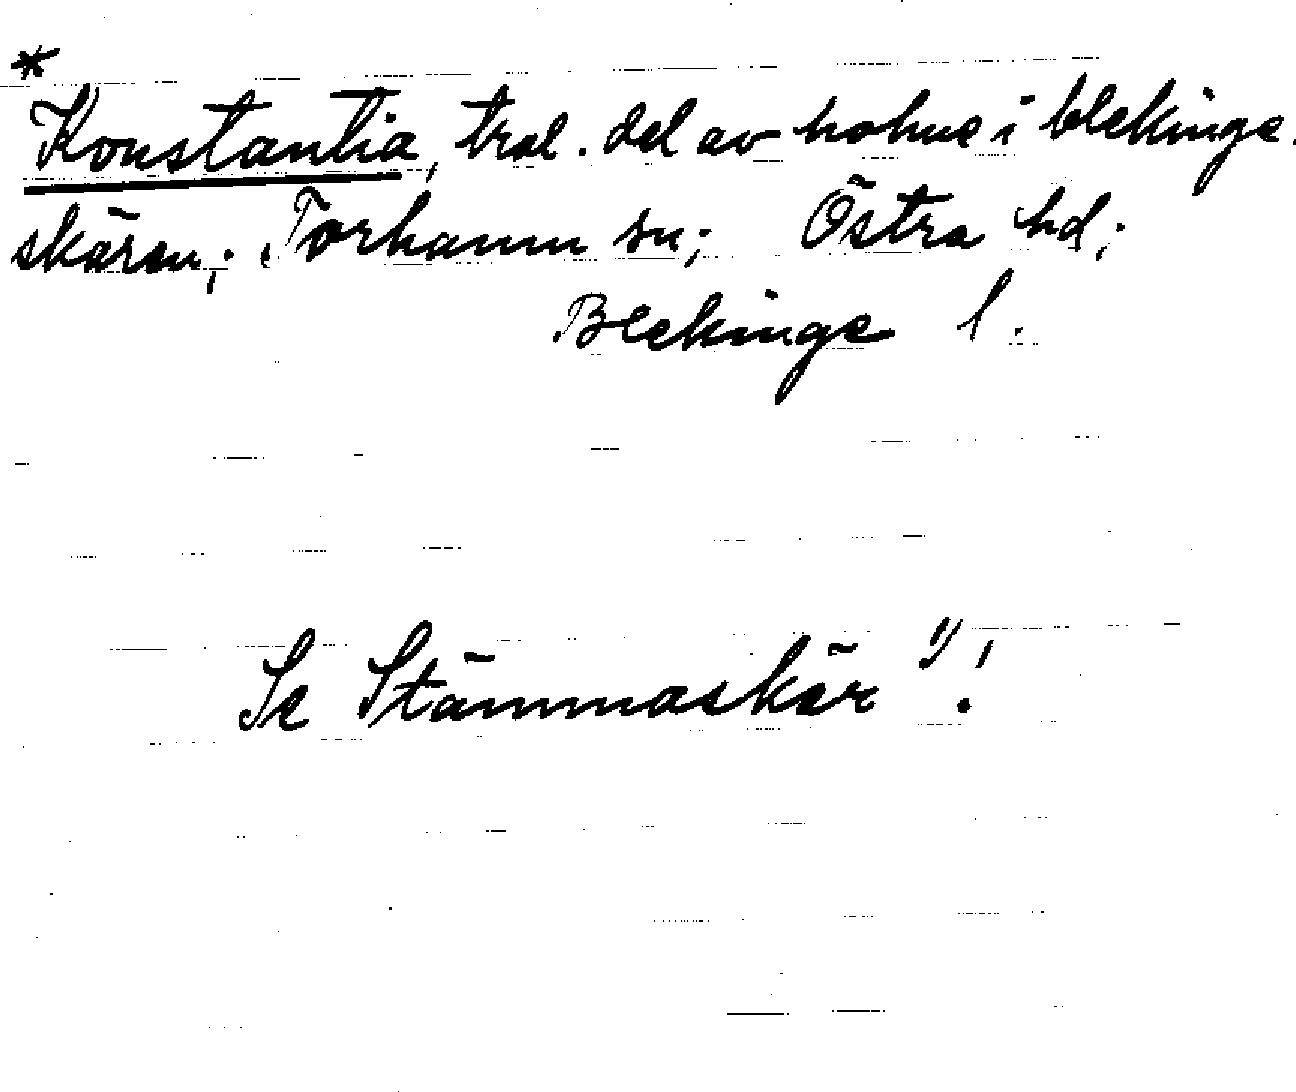 *
Konstantia, tral. del av holme i blekinge-
skären; Torhamn sn; Östra hd;
Blekinge l.
Se Stämmaskär "!